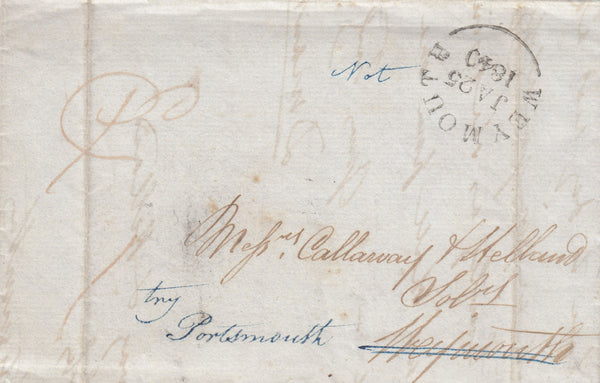 WEYMOUTH
JA 25
1840
Not
Messrs. Callaway & Helland
Solrs
Weymouth
try
Portsmouth